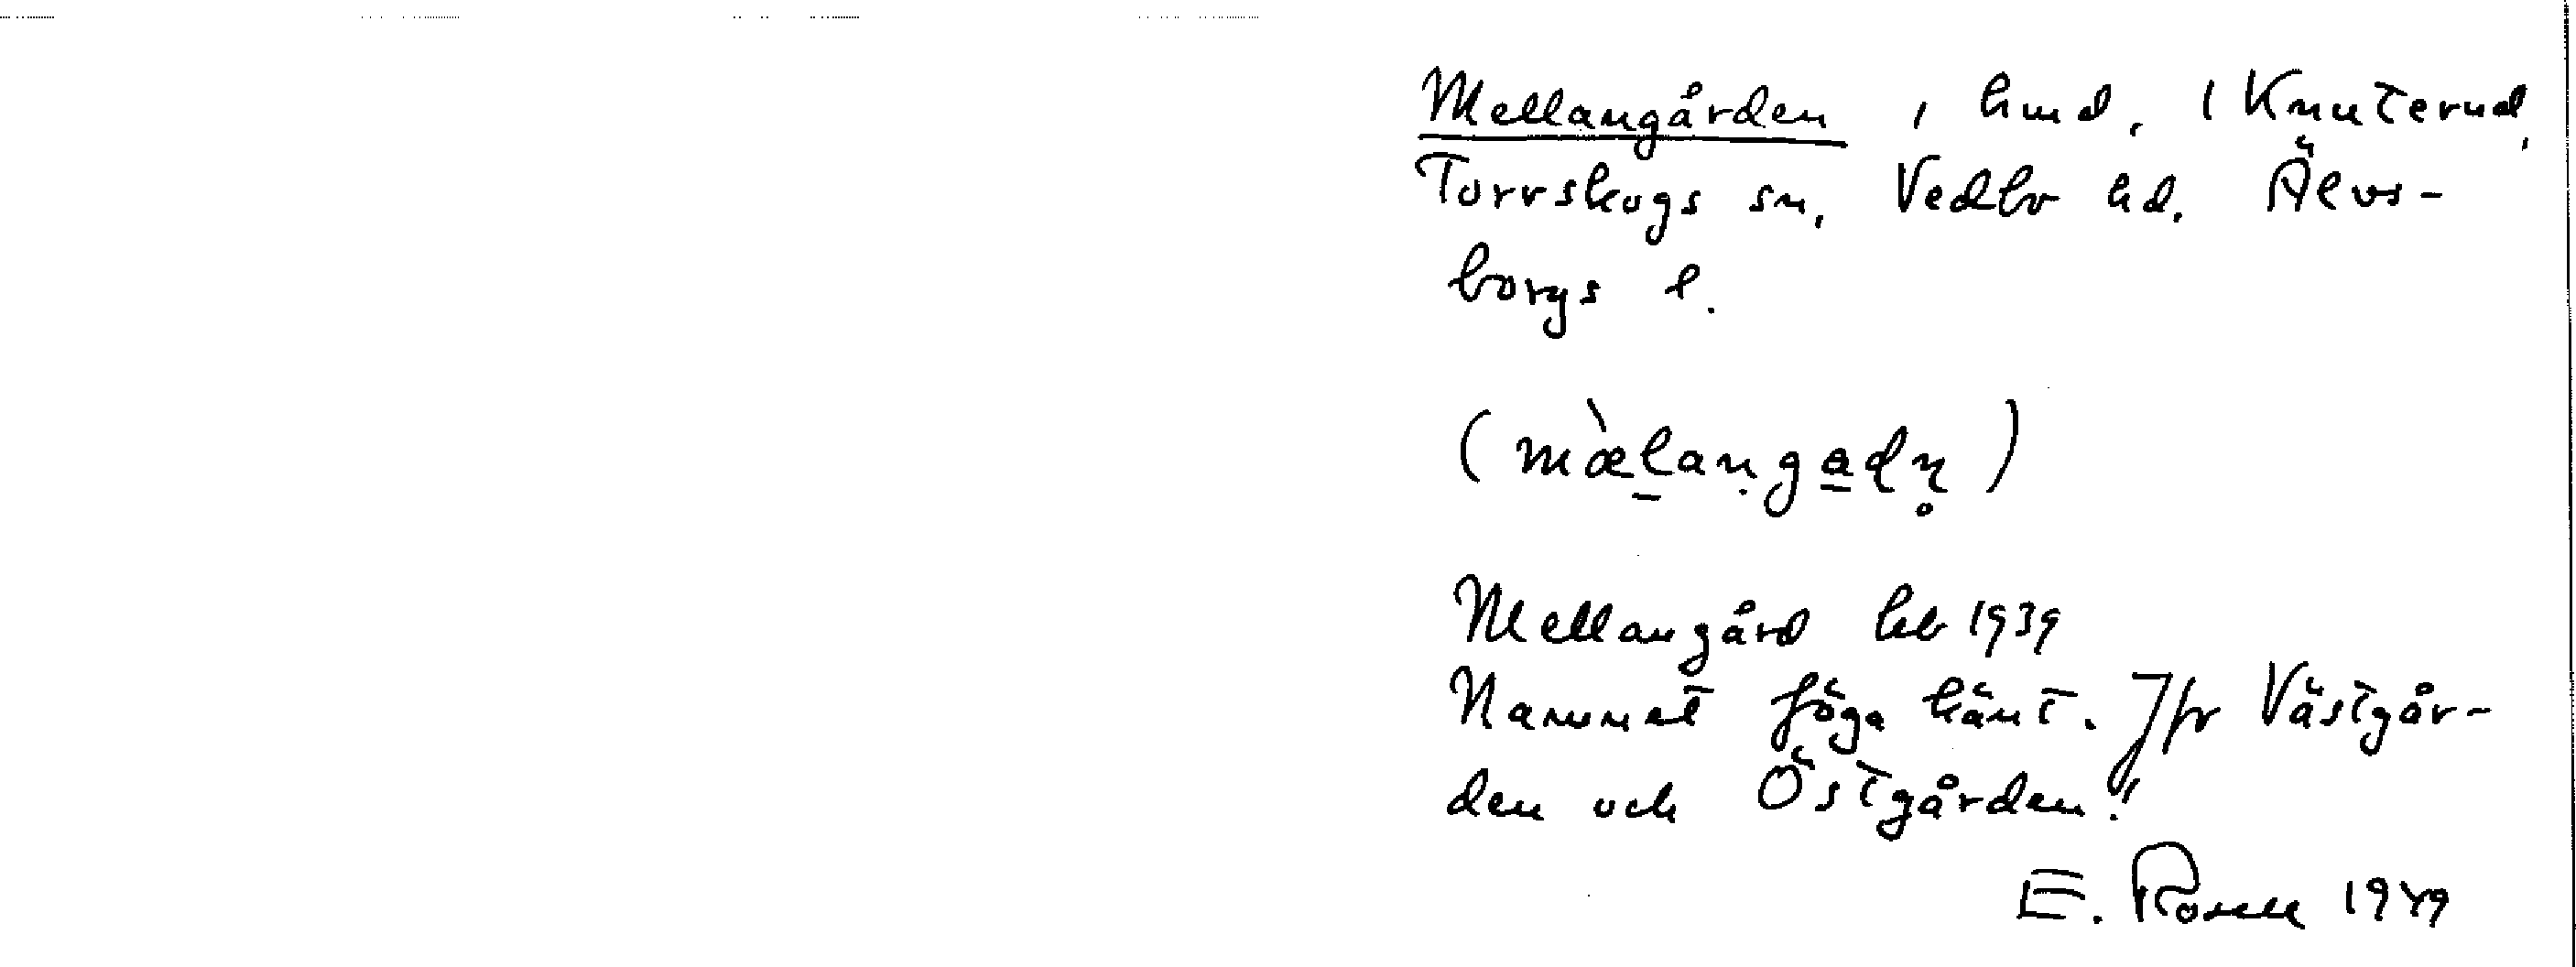 Mellangården, hmd. 1 Knuterud,
Torrskogs sn, Vedbo hd. Älvs-
borgs l.
(mæ̀l̠aṇga̠dn̥)
Mellangård hb 1939
Namnet föga känt. Jfr Västgår-
den och Östgården!
E. Rosell 1949